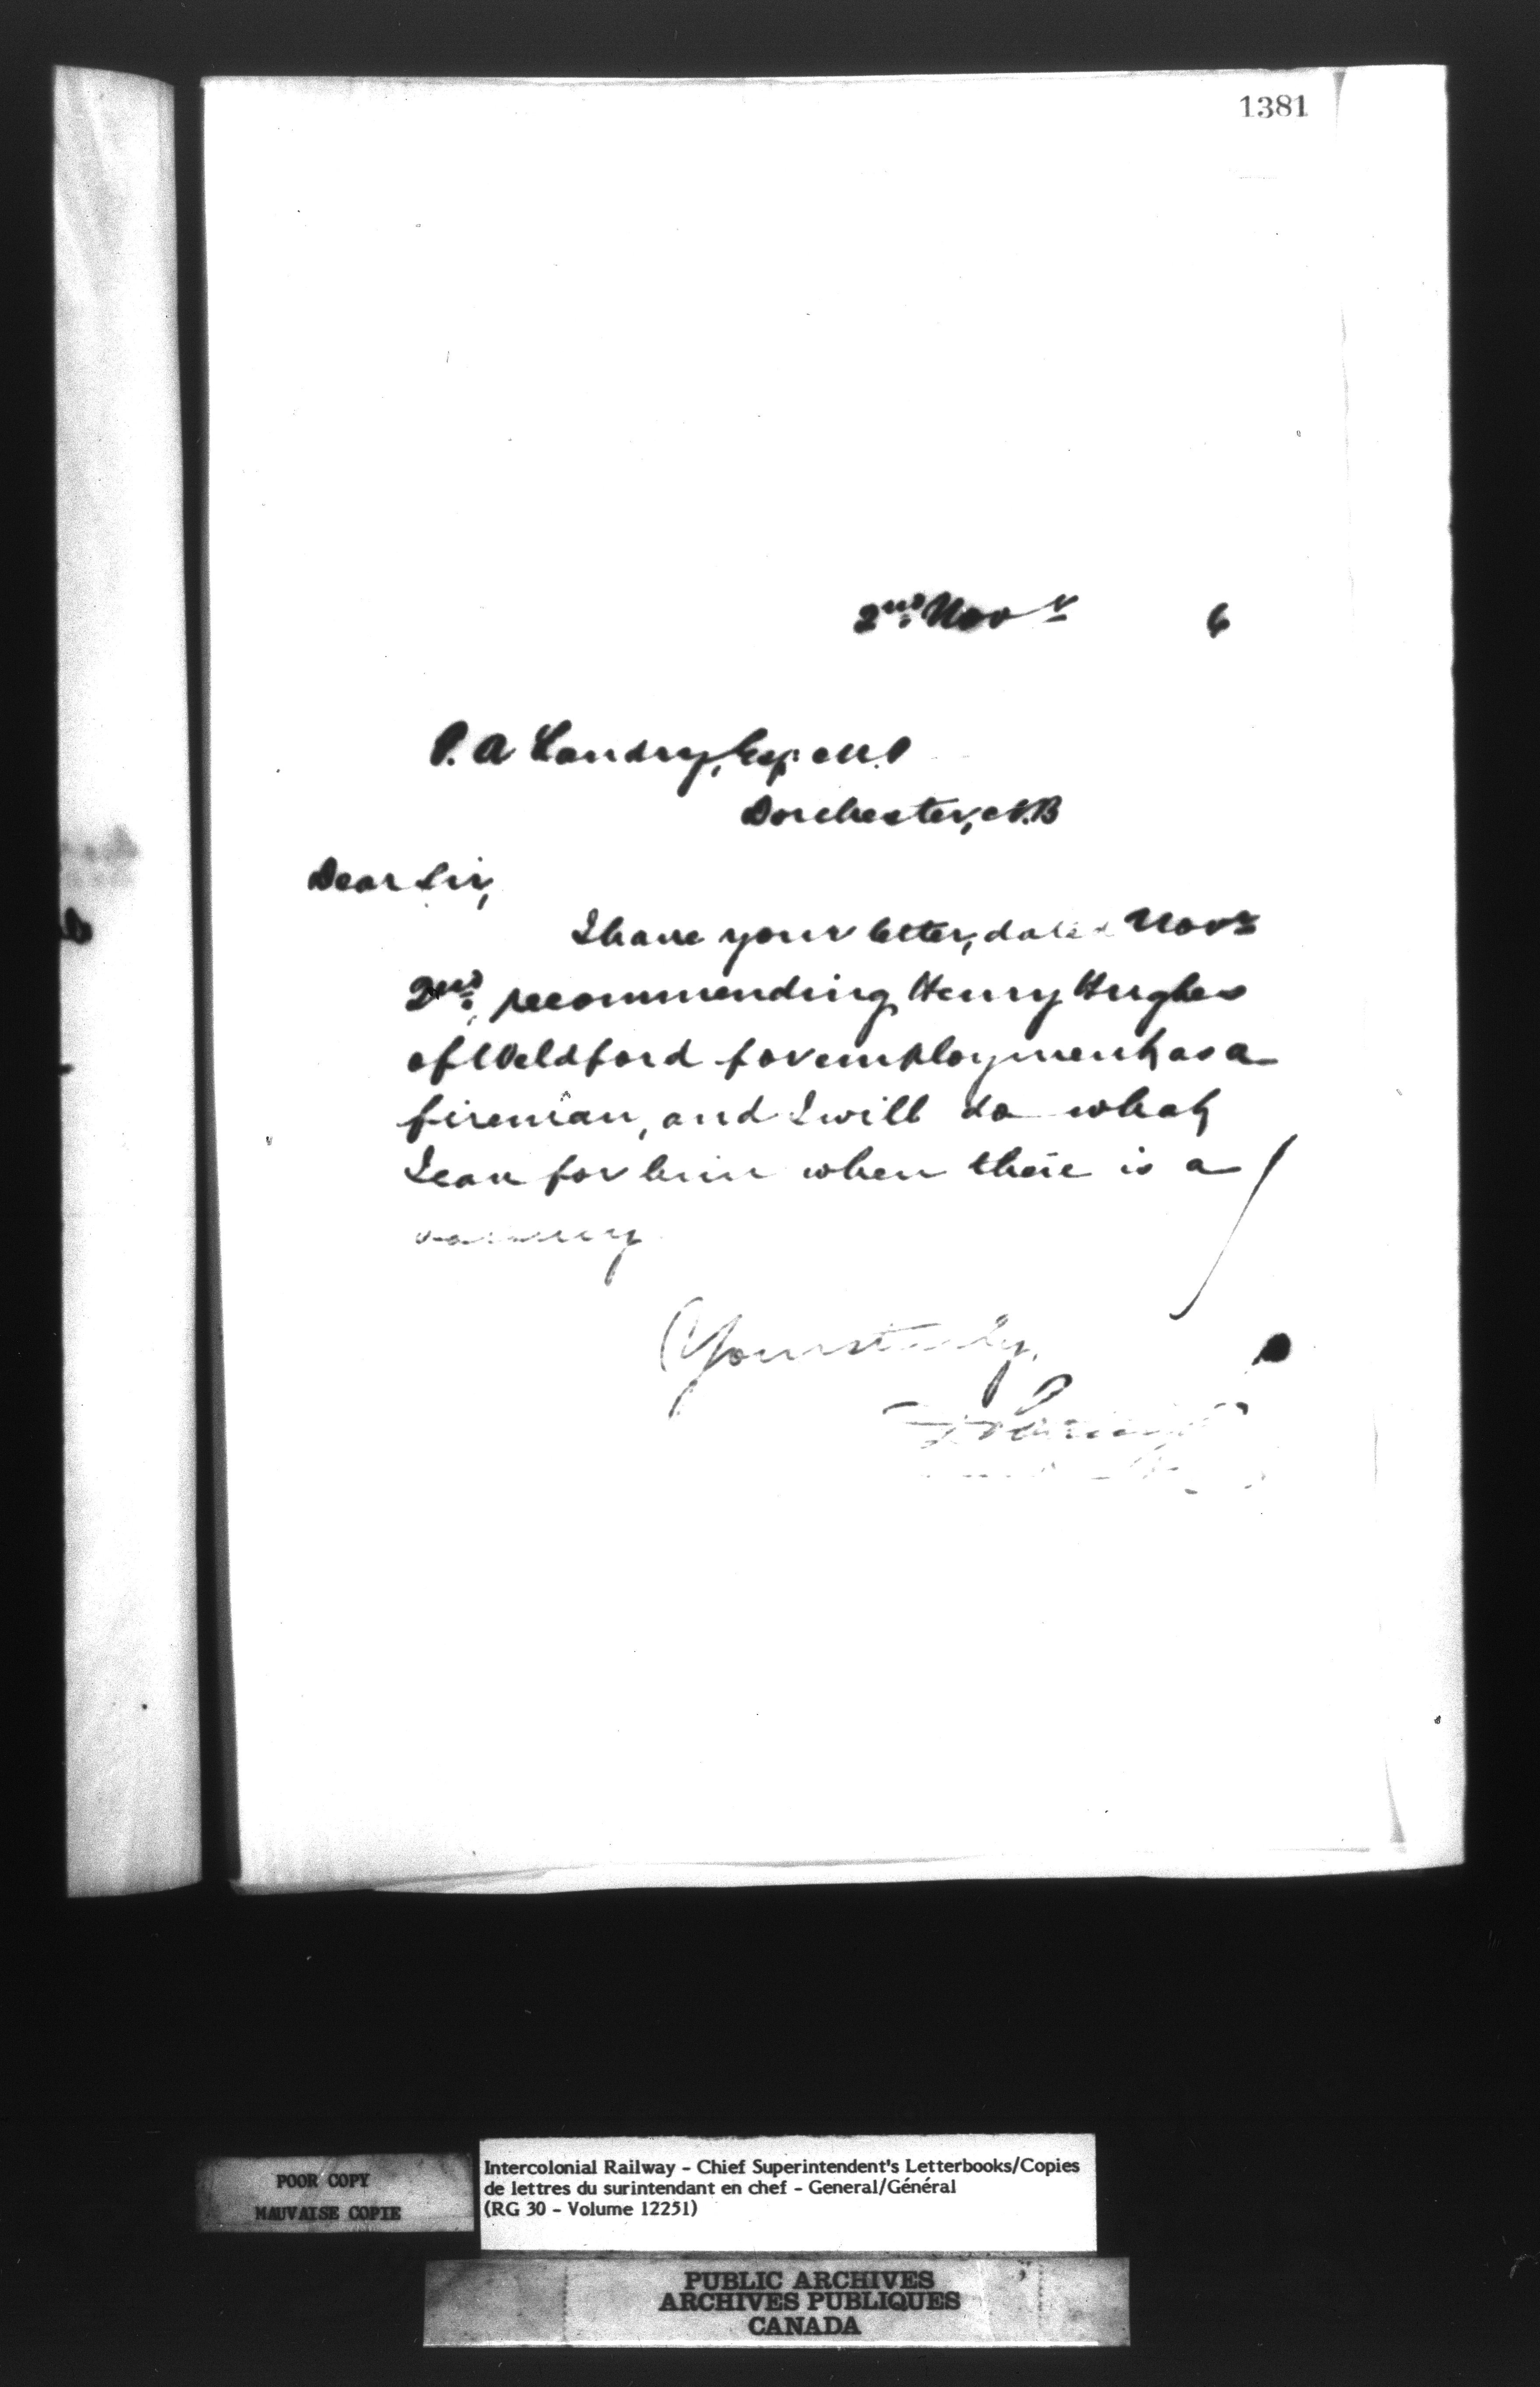 1381
2nd Novr 6
P. A Landry, Esq. M.P
Dorchester, N.B
Dear Sir,
I have your letter, dated Novr
2nd, recommending Henry Hughes
of Weldford for employment as a
fireman, and I will do what
I can for him when there is a
vacancy
Yours truly,
POOR COPY
MAUVAISE COPIE
Intercolonial Railway - Chief Superintendent's Letterbooks/Copies
de lettres du surintendant en chef - General/Général
(RG 30 - Volume 12251)
PUBLIC ARCHIVES
ARCHIVES PUBLIQUES
CANADA